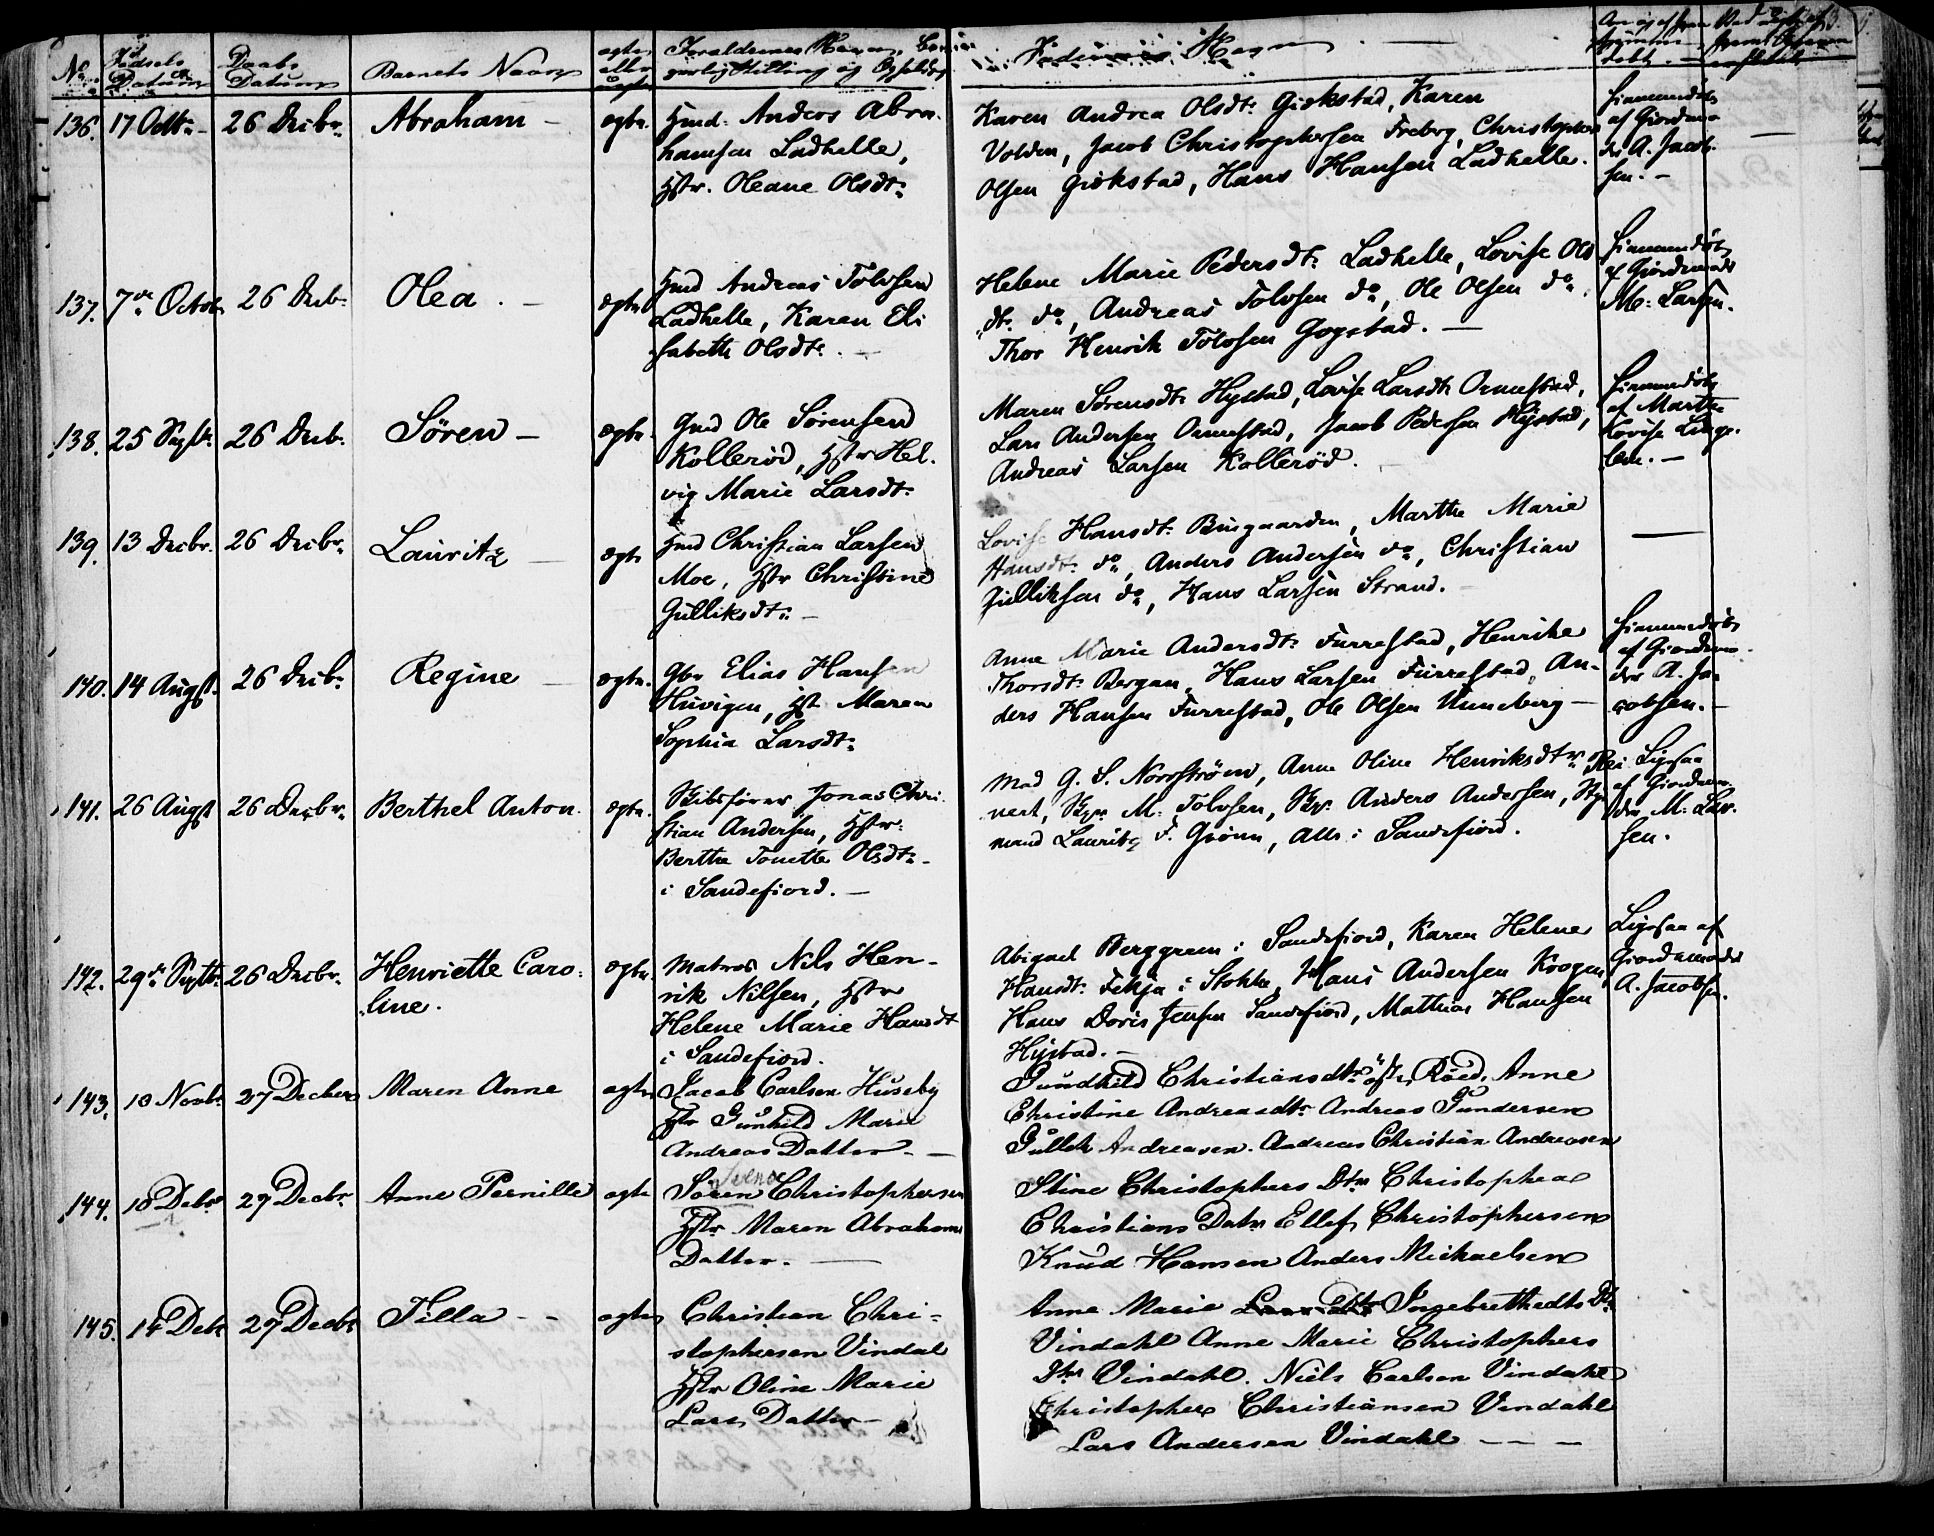 No. Fødsels Datum Daabs Datum Barnets Navn ægte eller uægte Forældrenes Navne, Borgerlig Stilling og Opholds Faddernes Navne
136. 17 Octbr. 26 Decbr. Abraham – ægte. Gmd. Anders Abra-
hamsen Ladhelle,
Hstr. Oleane Olsdtr.
Karen Andrea Olsdtr. Giøkstad, Karen
Volden, Jacob Christophersen Freberg, Christopher
Olsen Giøkstad, Hans Hansen Ladhelle.
Hiemmedøbt
af Giordmo-
der A. Jacob-
sen. –
137. 7de Octobr 26 Decb. Olea. – ægte Gmd Andreas Tolvsen
Ladhelle, Karen Eli
sabeth Olsdtr. –
Helene Marie Pedersdtr. Ladhelle, Lovise Ols
dtr. do, Andreas Tolvsen do, Ole Olsen do,
Thor Henrik Tolvsen Gogstad. –
Hiemmedøbt
af Giordmoder
M. Larsen.
138. 25 Septr. 26 Decb. Søren – ægte. Gmd Ole Sørensen
Kollerød, Hstr Hel-
vig Marie Larsdtr.
Maren Sørensdtr. Hystad, Lovise Larsdtr Ormestad,
Lars Andersen Ormestad, Jacob Pedersen Hystad,
Andreas Larsen Kollerød.
Hiemmedøbt
af Marthe
Lovise
139. 13 Decbr. 26 Decbr. Lauritz – ægte Gmd Christian Larsen
Moe, Hstr Christine
Gulliksdtr. –
Lovise Hansdtr. Buegaarden, Marthe Marie
Hansdtr. do, Anders Andersen do, Christian
Gulliksen do, Hans Larsen Strand. –
140. 14 Augst. 26 Decbr. Regine – ægte. Gbr Elias Hansen
Huvigen, Hst. Maren
Sophia Larsdtr.
Anne Marie Andersdtr. Furrestad, Henrike
Thorsdtr. Bergan, Hans Larsen Furrestad, An-
ders Hansen Furrestad, Ole Olsen Unneberg –
Hiemmedøbt
af Giordmo-
der A. Ja-
cobsen. –
141. 26 Augst 26 Decbr. Berthel Anton. ægte. Skibsfører Jonas Chri-
stian Andersen, Hstr.
Berthe Tonette Olsdtr.
i Sandefiord. –
Mad G. S. Norrstrøm, Anne Oline Henriksdtr
nert, Skpr M. Tolvsen, Skpr. Anders Andersen, Styr
mand Lauritz F. Grønn, Alle i Sandefiord.
Ligesaa
af Giordmo-
der M. Lar-
sen.
142. 29de Septbr. 26 Decbr. Henriette Caro-
line.
ægte. Matros Nils Hen-
rik Nilsen, Hstr
Helene Marie Hansdtr
i Sandefiord.
Abigael Berggreen i Sandefiord, Karen Helene
Hansdtr. Fekja i Stokke, Hans Andersen Krogen,
Hans Doris Jensen Sandefiord, Mathias Hansen
Hystad. –
Ligesaa af
Giordemoder
A. Jacobsen.
143. 10 Novbr. 27 Decbr Maren Anne ægte Jacob Carlsen Huseby
Hstr Gunhild Marie
Andreas Datter. –
Gundhild Christiansdtr. øster Røed. Anne
Christine Andreasdtr. Andreas Gundersen
Gullek Andreasen. Andreas Christian Andreasen
144. 18 Debr 29 Decbr. Anne Pernille ægte Søren Christophersen
Hstr Maren Abrahams
Datter. –
Stine Christophers Dtr Christophea
Christians Datr Ellef Christophersen
Knud Hansen Anders Michaelsen
145. 14 Debr 29 Decbr Tilla – – ægte Christian Chri-
stophersen Vindal
Hstr Oline Marie
Lars Datter –
Anne Marie Ingebrethsdtr Dtr
Vindahl Anne Marie Christophers
Dtr Vindahl. Niels Carlsen Vindahl
Christopher Christiansen Vindahl
Lars Andersen Vindahl – – –